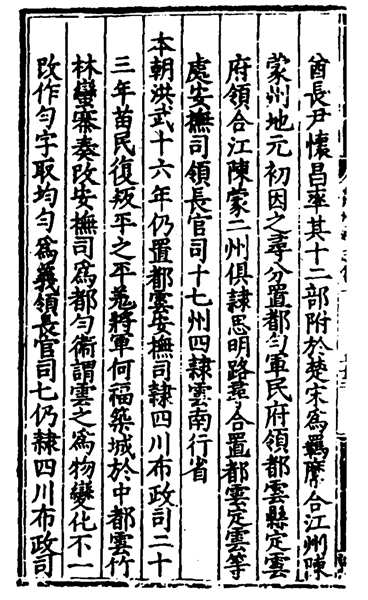 酋長尹懷昌率其十二部附於楚宋爲羈縻合江州陳
蒙州地元初因之尋分置都勻軍民府領都雲縣定雲
府領合江陳蒙二州俱隷思明路尋合置都雲定雲等
處安撫司領長官司十七州四隷雲南行省
本朝洪武十六年仍置都雲安撫司隷四川布政司二十
三年苗民復叛平之平羗將軍何福築城於中都雲竹
林蠻寨奏改安撫司爲都勻衛謂雲之爲物變化不一
改作勻字取均勻爲義領長官司七仍隷四川布政司